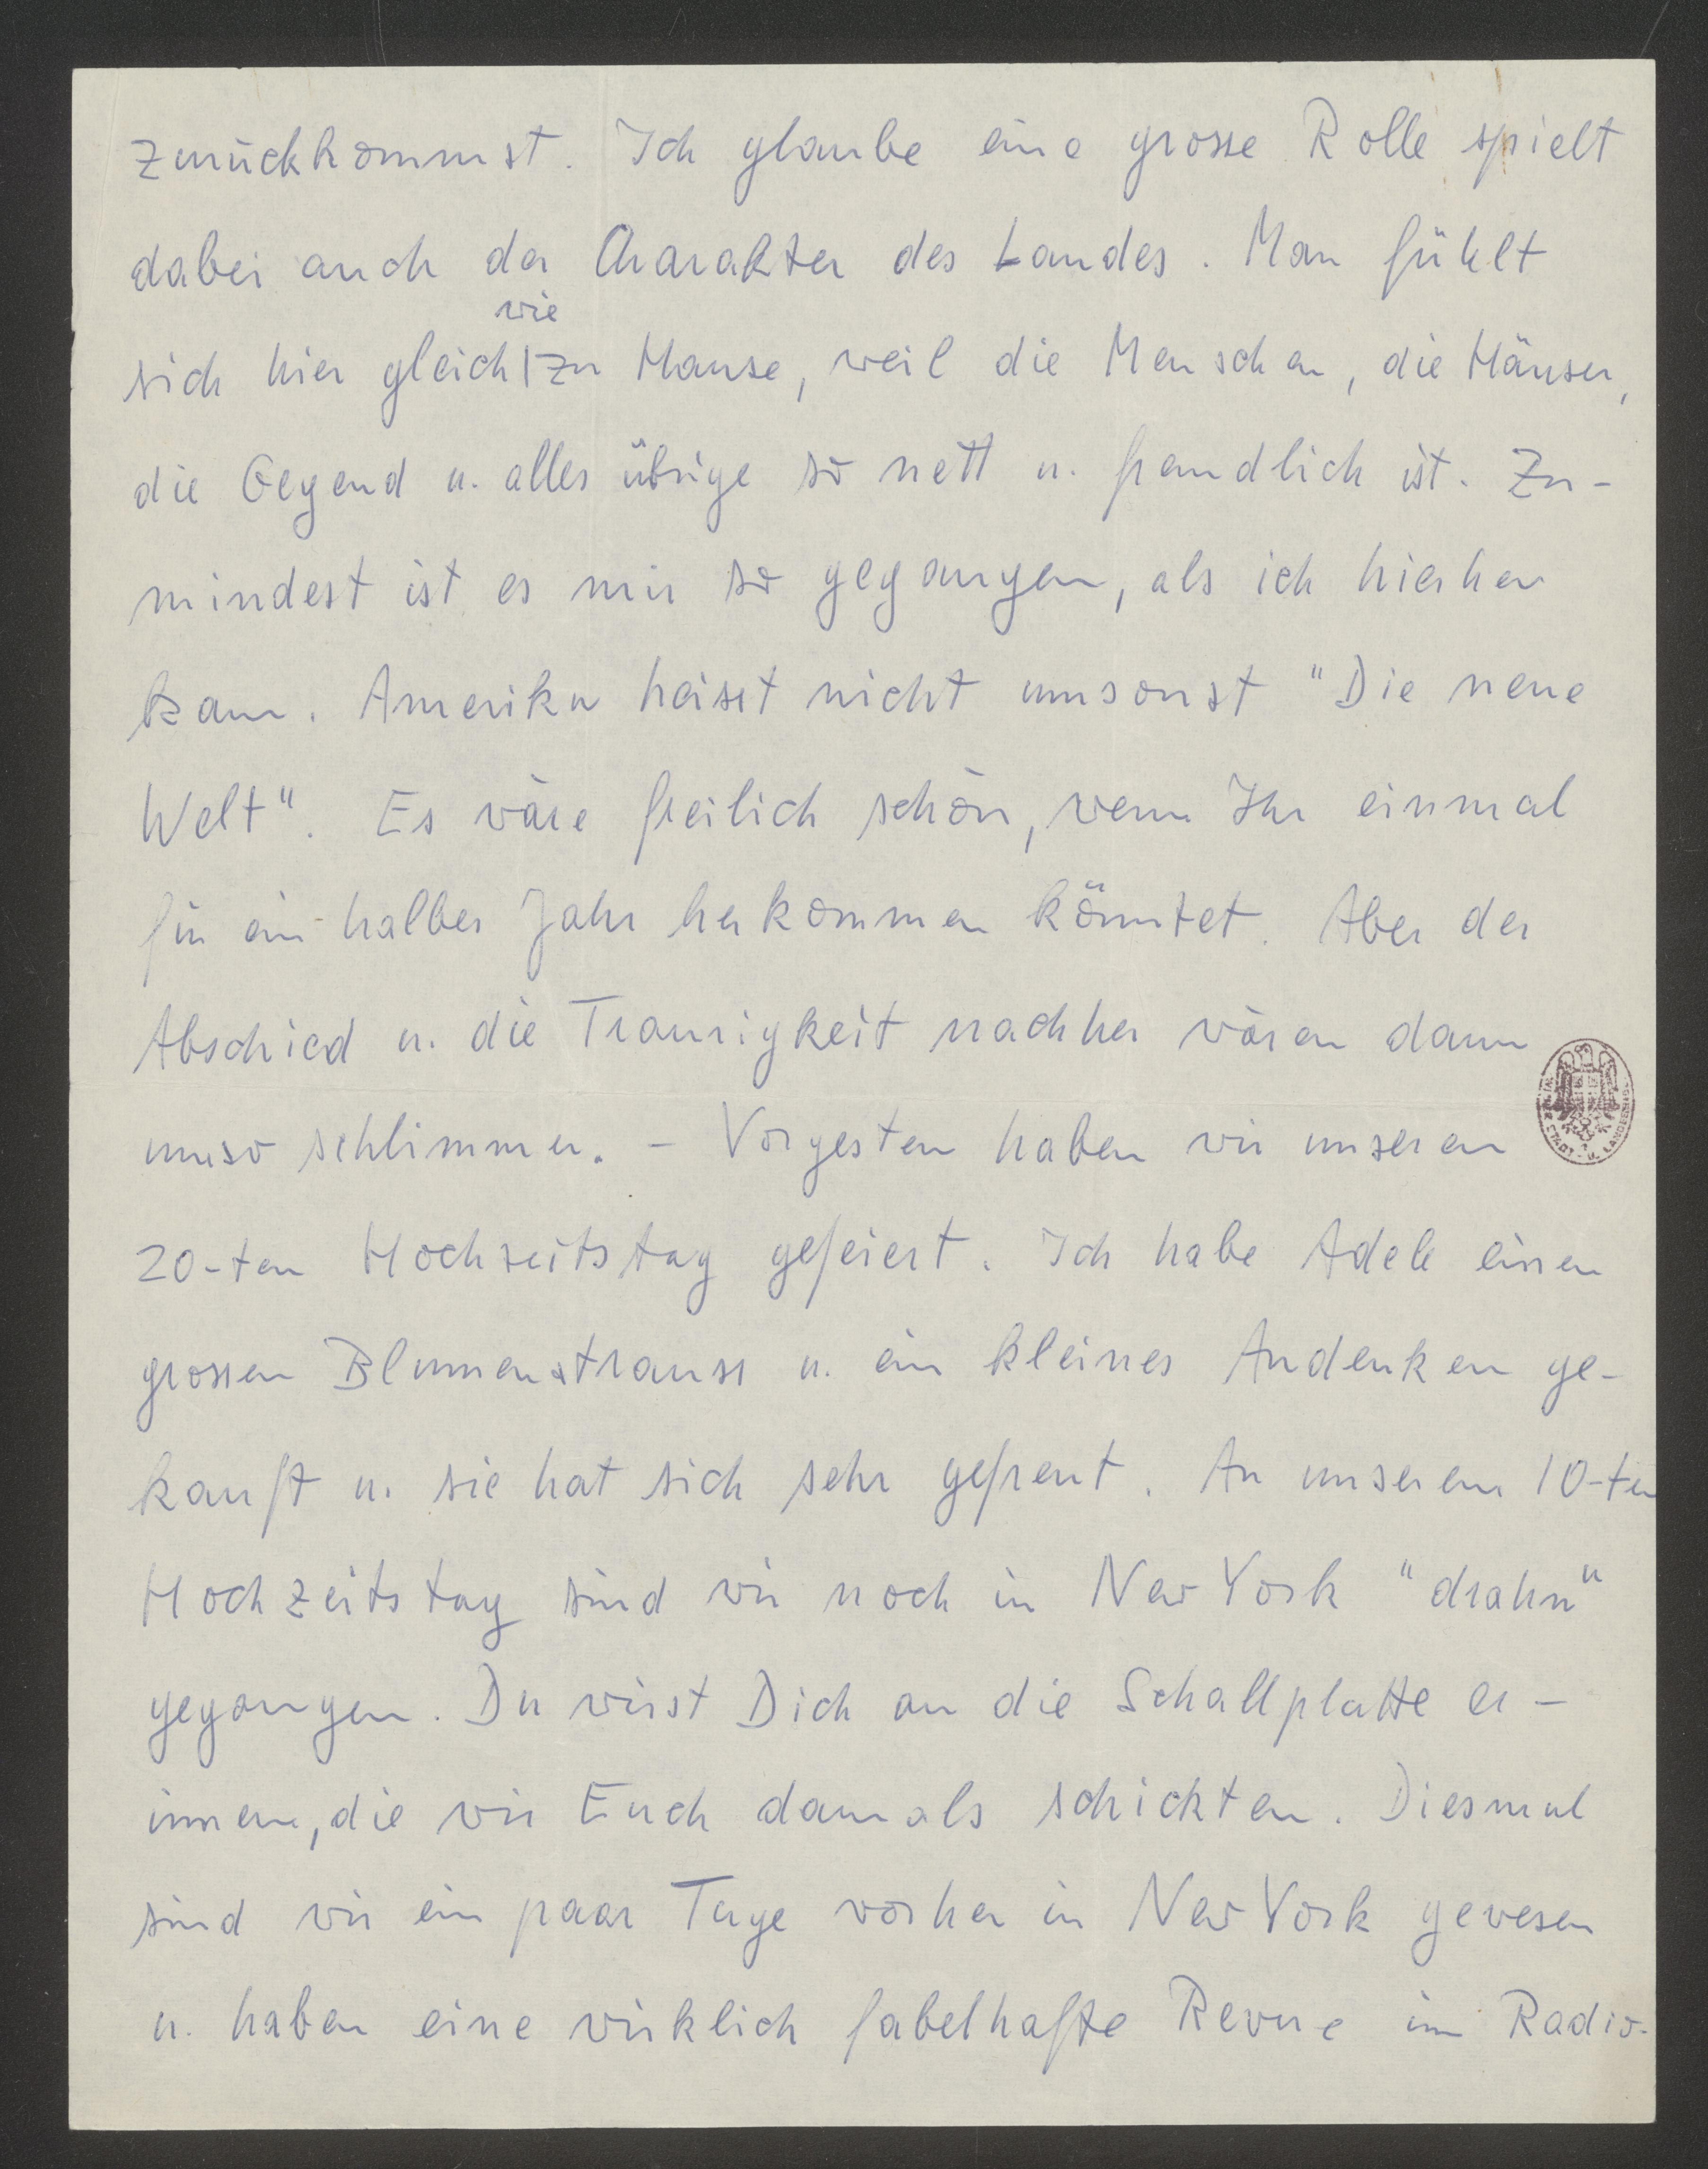 zurückkommst. Ich glaube eine grosse Rolle spielt
dabei auch der Charakter des Landes. Man fühlt
wie
sich hier gleich zu Hause, weil die Menschen, die Häuser,
die Gegend u. alles übrige so nett u. freundlich ist. Zu-
mindest ist es mir so gegangen, als ich hierher
kam. Amerika heisst nicht umsonst "Die neue
Welt". Es wäre freilich schön, wenn Ihr einmal
für ein halbes Jahr herkommen könntet. Aber der
Abschied u. die Traurigkeit nachher wären dann
umso schlimmer. – Vorgestern haben wir unseren
20-ten Hochzeitstag gefeiert. Ich habe Adele einen
grossen Blumenstrauss u. ein kleines Andenken ge-
kauft u. sie hat sich sehr gefreut. An unserem 10-ten
Hochzeitstag sind wir noch in New York "drahn"
gegangen. Du wirst Dich an die Schallplatte er-
innern, die wir Euch damals schickten. Diesmal
sind wir ein paar Tage vorher in New York gewesen
u. haben eine wirklich fabelhafte Revue im Radio-